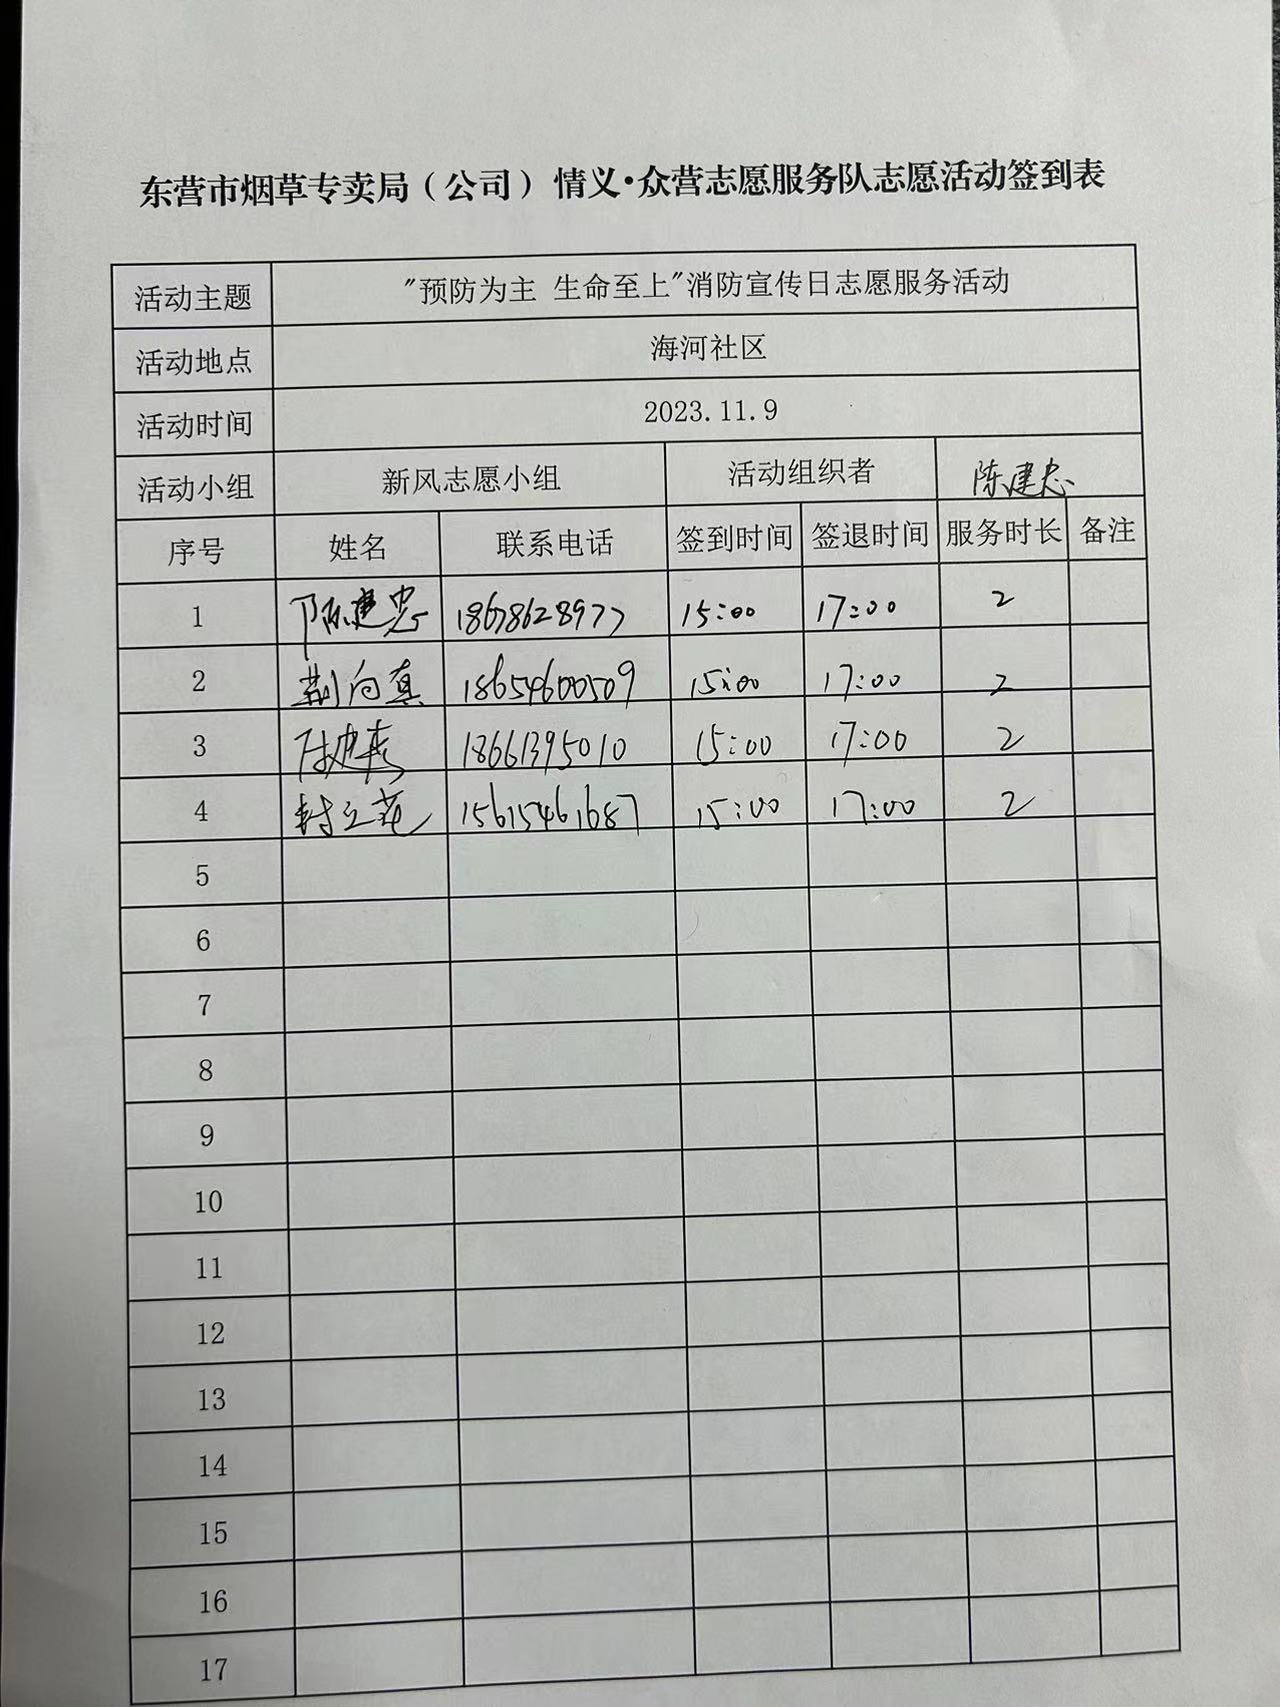 东营市烟草专卖局（公司）情义·众营志愿服务队志愿活动签到表
活动主题 "预防为主 生命至上"消防宣传日志愿服务活动
活动地点 海河社区
活动时间 2023.11.9
活动小组 新风志愿小组 活动组织者 陈建忠
序号 姓名 联系电话 签到时间 签退时间 服务时长 备注
1 陈建忠 18678628977 15:00 17:00 2
2 荆向真 18654600509 15:00 17:00 2
3 18661395010 15:00 17:00 2
4 封立花 15615461687 15:00 17:00 2
5
6
7
8
9
10
11
12
13
14
15
16
17